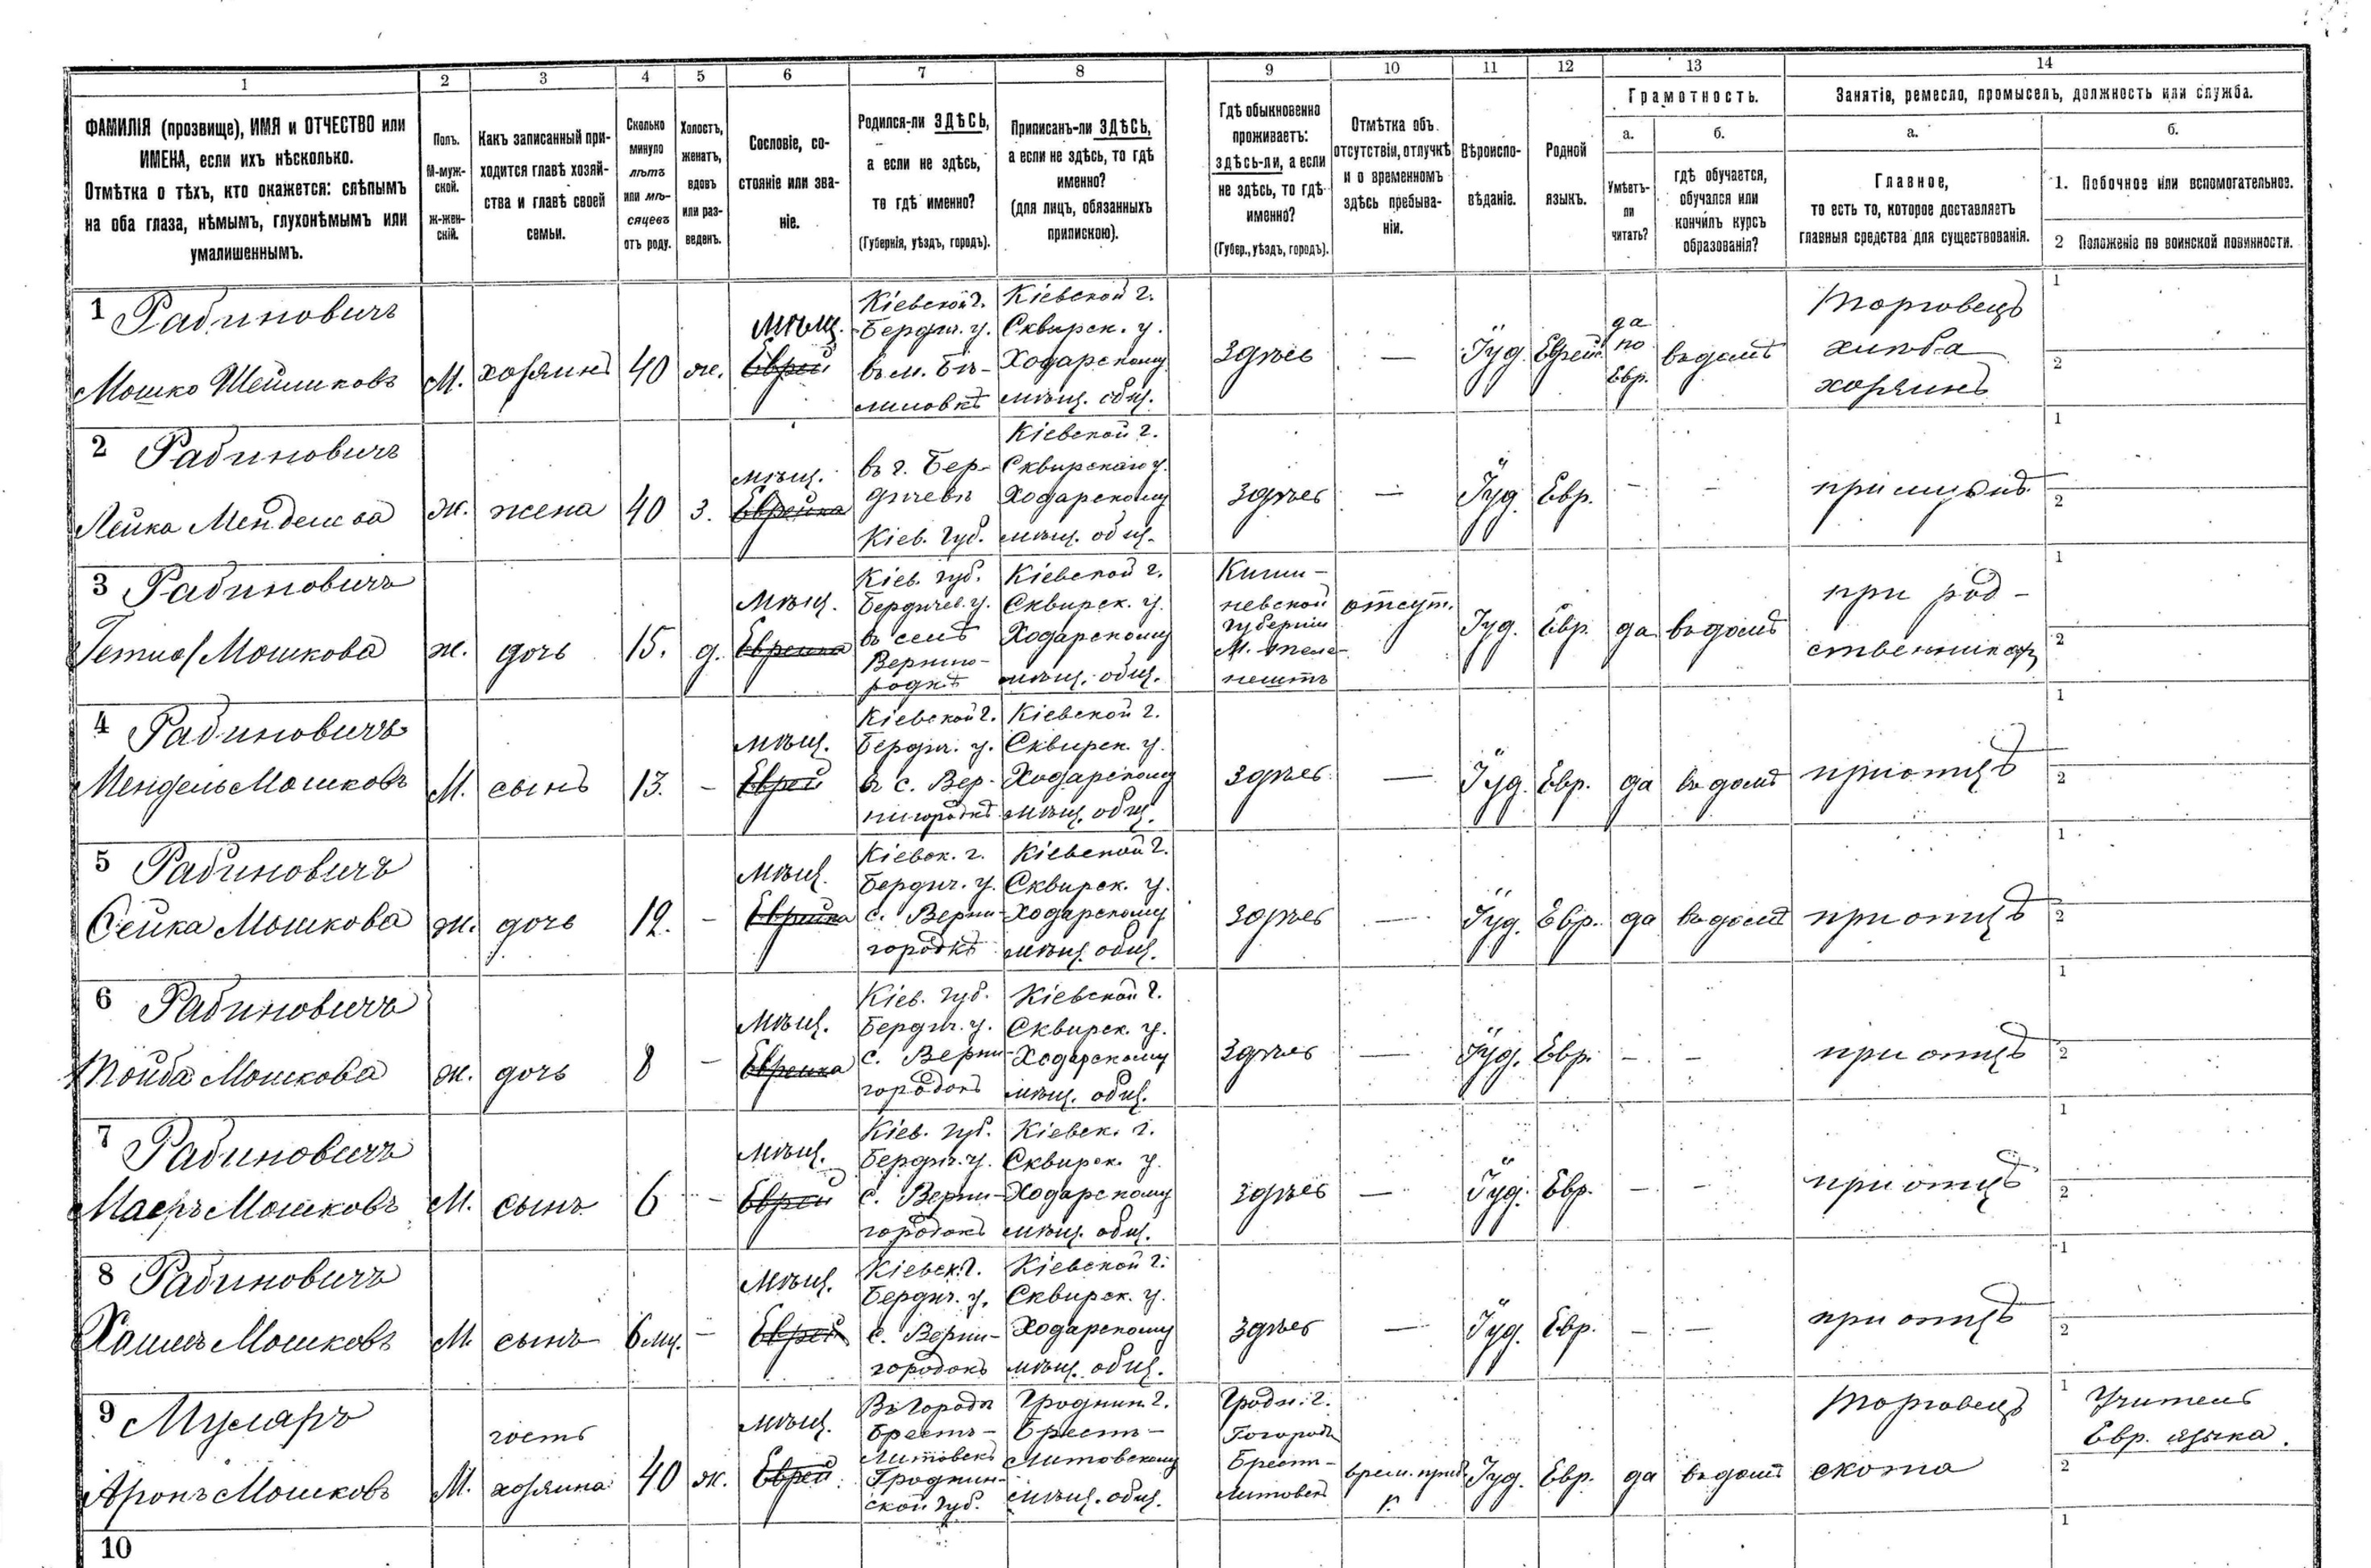 1 2 3 4 5 6 7 8 9 10 11 12 13 14
ФАМИЛІЯ (прозвище), ИМЯ и ОТЧЕСТВО или
ИМЕНА, если ихъ нѣсколько.
Отмѣтка о тѣхъ, кто окажется: слѣпымъ
на оба глаза, нѣмымъ, глухонѣмымъ или
умалишеннымъ.
Полъ.
М-муж-
ской.
ж-жен-
скій.
Какъ записанный при-
ходится главѣ хозяй-
ства и главѣ своей
семьи.
Сколько
минуло
лѣтъ
или мѣ-
сяцевъ
отъ роду.
Холостъ,
женатъ,
вдовъ
или раз-
веденъ.
Сословіе, со-
стояніе или зва-
ніе.
Родился-ли ЗДѢСЬ,
а если не здѣсь,
то гдѣ именно?
(Губернія, уѣздъ, городъ).
Приписанъ-ли ЗДѢСЬ,
а если не здѣсь, то гдѣ
именно?
(для лицъ, обязанныхъ
припискою).
Гдѣ обыкновенно
проживаетъ:
здѣсь-ли, а если
не здѣсь, то гдѣ
именно?
(Губер., уѣздъ, городъ).
Отмѣтка объ
отсутствіи, отлучкѣ
и о временномъ
здѣсь пребыва-
ніи.
Вѣроиспо-
вѣданіе.
Родной
языкъ.
Грамотность.
а.
Умѣетъ-
ли
читать?
б.
гдѣ обучается,
обучался или
кончилъ курсъ
образованія?
Занятіе, ремесло, промыселъ, должность или служба.
а.
Главное,
то есть то, которое доставляетъ
главныя средства для существованія.
б.
1. Побочное или вспомогательное.
2 Положеніе по воинской повинности.
1 Рабиновичъ
Мошко Шеймиковъ
М.
хозяинъ
40
ж.
Мѣщ.
Еврей
Кіевской г.
Бердич. у.
въ м. Бѣ-
лиловкѣ
Кіевской г.
Сквирск. у.
Ходарскому
мѣщ. общ.
здѣсь
—
Іуд.
Еврей.
да
по
Евр.
въ домѣ
Торговецъ
хлѣба
хозяинъ
1
2
2 Рабиновичъ
Лейка Менделева
ж.
жена
40
з.
мѣщ.
Еврейка
въ г. Бер-
дичевѣ
Кіев. Губ.
Кіевской г.
Сквирскаго у.
Ходарскому
мѣщ. общ.
здѣсь
—
Іуд.
Евр.
-
-
при мужѣ
1
2
3 Рабиновичъ
Мошкова
ж.
дочь
15.
д.
Мѣщ.
Еврейка
Кіев. губ.
Бердичев. у.
въ селѣ
Верни-
родкѣ
Кіевской г.
Сквирск. у.
Ходарскому
мѣщ. общ.
Киши-
невской
губерніи
М. Теле-
нешть
отсут.
Іуд.
Евр.
да
въ домѣ
при род-
ственникахъ
1
2
4 Рабиновичъ
Мендель Мошковъ
М.
сынъ
13.
-
мѣщ.
Еврей
Кіевской г.
Бердич. у.
въ с. Вер-
нигородкѣ
Кіевской г.
Сквирск. у.
Ходарскому
мѣщ. общ.
здѣсь
—
Іуд.
Евр.
да
въ домѣ
при отцѣ
1
2
5 Рабиновичъ
Сейка Мошкова
ж.
дочь
12.
-
мѣщ.
Еврейка
Кіевск. г.
Бердич. у.
с. Верни-
городкѣ
Кіевской г.
Сквирск. у.
Ходарскому
мѣщ. общ.
здѣсь
—
Іуд.
Евр.
да
въ домѣ
при отцѣ
1
2
6 Рабиновичъ
Тойба Мошкова
ж.
дочь
8
-
Мѣщ.
Еврейка
Кіев. губ.
Бердич. у.
с. Верни-
городокъ
Кіевской г.
Сквирск. у.
Ходарскому
мѣщ. общ.
здѣсь
—
Іуд.
Евр.
-
-
при отцѣ
1
2
7 Рабиновичъ
Маеръ Мошковъ
М.
сынъ
6
-
мѣщ.
Еврей
Кіев. губ.
Бердич. у.
с. Верни-
городокъ
Кіевск. г.
Сквирск. у.
Ходарскому
мѣщ. общ.
здѣсь
—
Іуд.
Евр.
-
-
при отцѣ
1
2
8 Рабиновичъ
Хаимъ Мошковъ
М.
сынъ
6 мц.
-
мѣщ.
Еврей
Кіевск. г.
Бердич. у.
с. Верни-
городокъ
Кіевской г.
Сквирск. у.
Ходарскому
мѣщ. общ.
здѣсь
—
Іуд.
Евр.
-
-
при отцѣ
1
2
9 Муляръ
Аронъ Мошковъ
М.
гость
хозяина
40
ж.
мѣщ.
Еврей
Въ городѣ
Брестъ-
Литовскъ
Гроднин-
ской губ.
Гроднин. г.
Брестъ-
Литовскому
мѣщ. общ.
Гродн. г.
Брест-
Литовск
врем.
Іуд.
Евр.
да
въ домѣ
Торговецъ
скота
1 Учитель
Евр. языка.
2
10
1